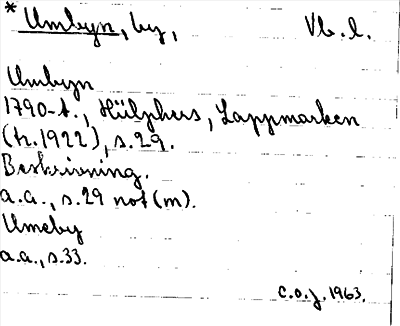 * Umbyn, by, Vb. l.
Umbyn
1790-t., Hülphers, Lappmarken
(tr. 1922), s. 29.
Beskrivning.
a.a., s. 29 not (m).
Umeby
a.a., s. 33.
C.O.J. 1963.